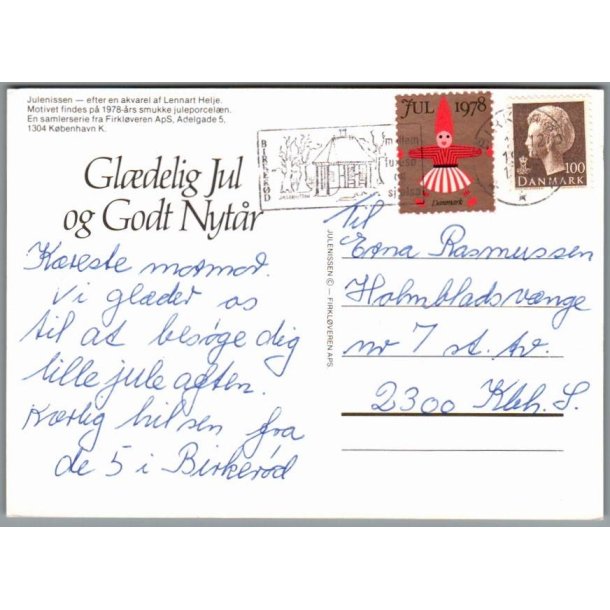 Julenissen — efter en akvarel af Lennart Helje.
Motivet findes på 1978-års smukke juleporcelæn.
En samlerserie fra Firkløveren ApS, Adelgade 5,
1304 København K.
JUL 1978
Danmark
100
DANMARK
BIRKERØD
Glædelig Jul
og Godt Nytår
Kæreste mormor.
Vi glæder os
til at besøge dig
lille jule aften.
Kærlig hilsen fra
de 5 i Birkerød
JULENISSEN © — FIRKLØVEREN APS.
Til
Erna Rasmussen
Holmbladsvænge
nr 7 st. tv.
2300 Kbh. S.